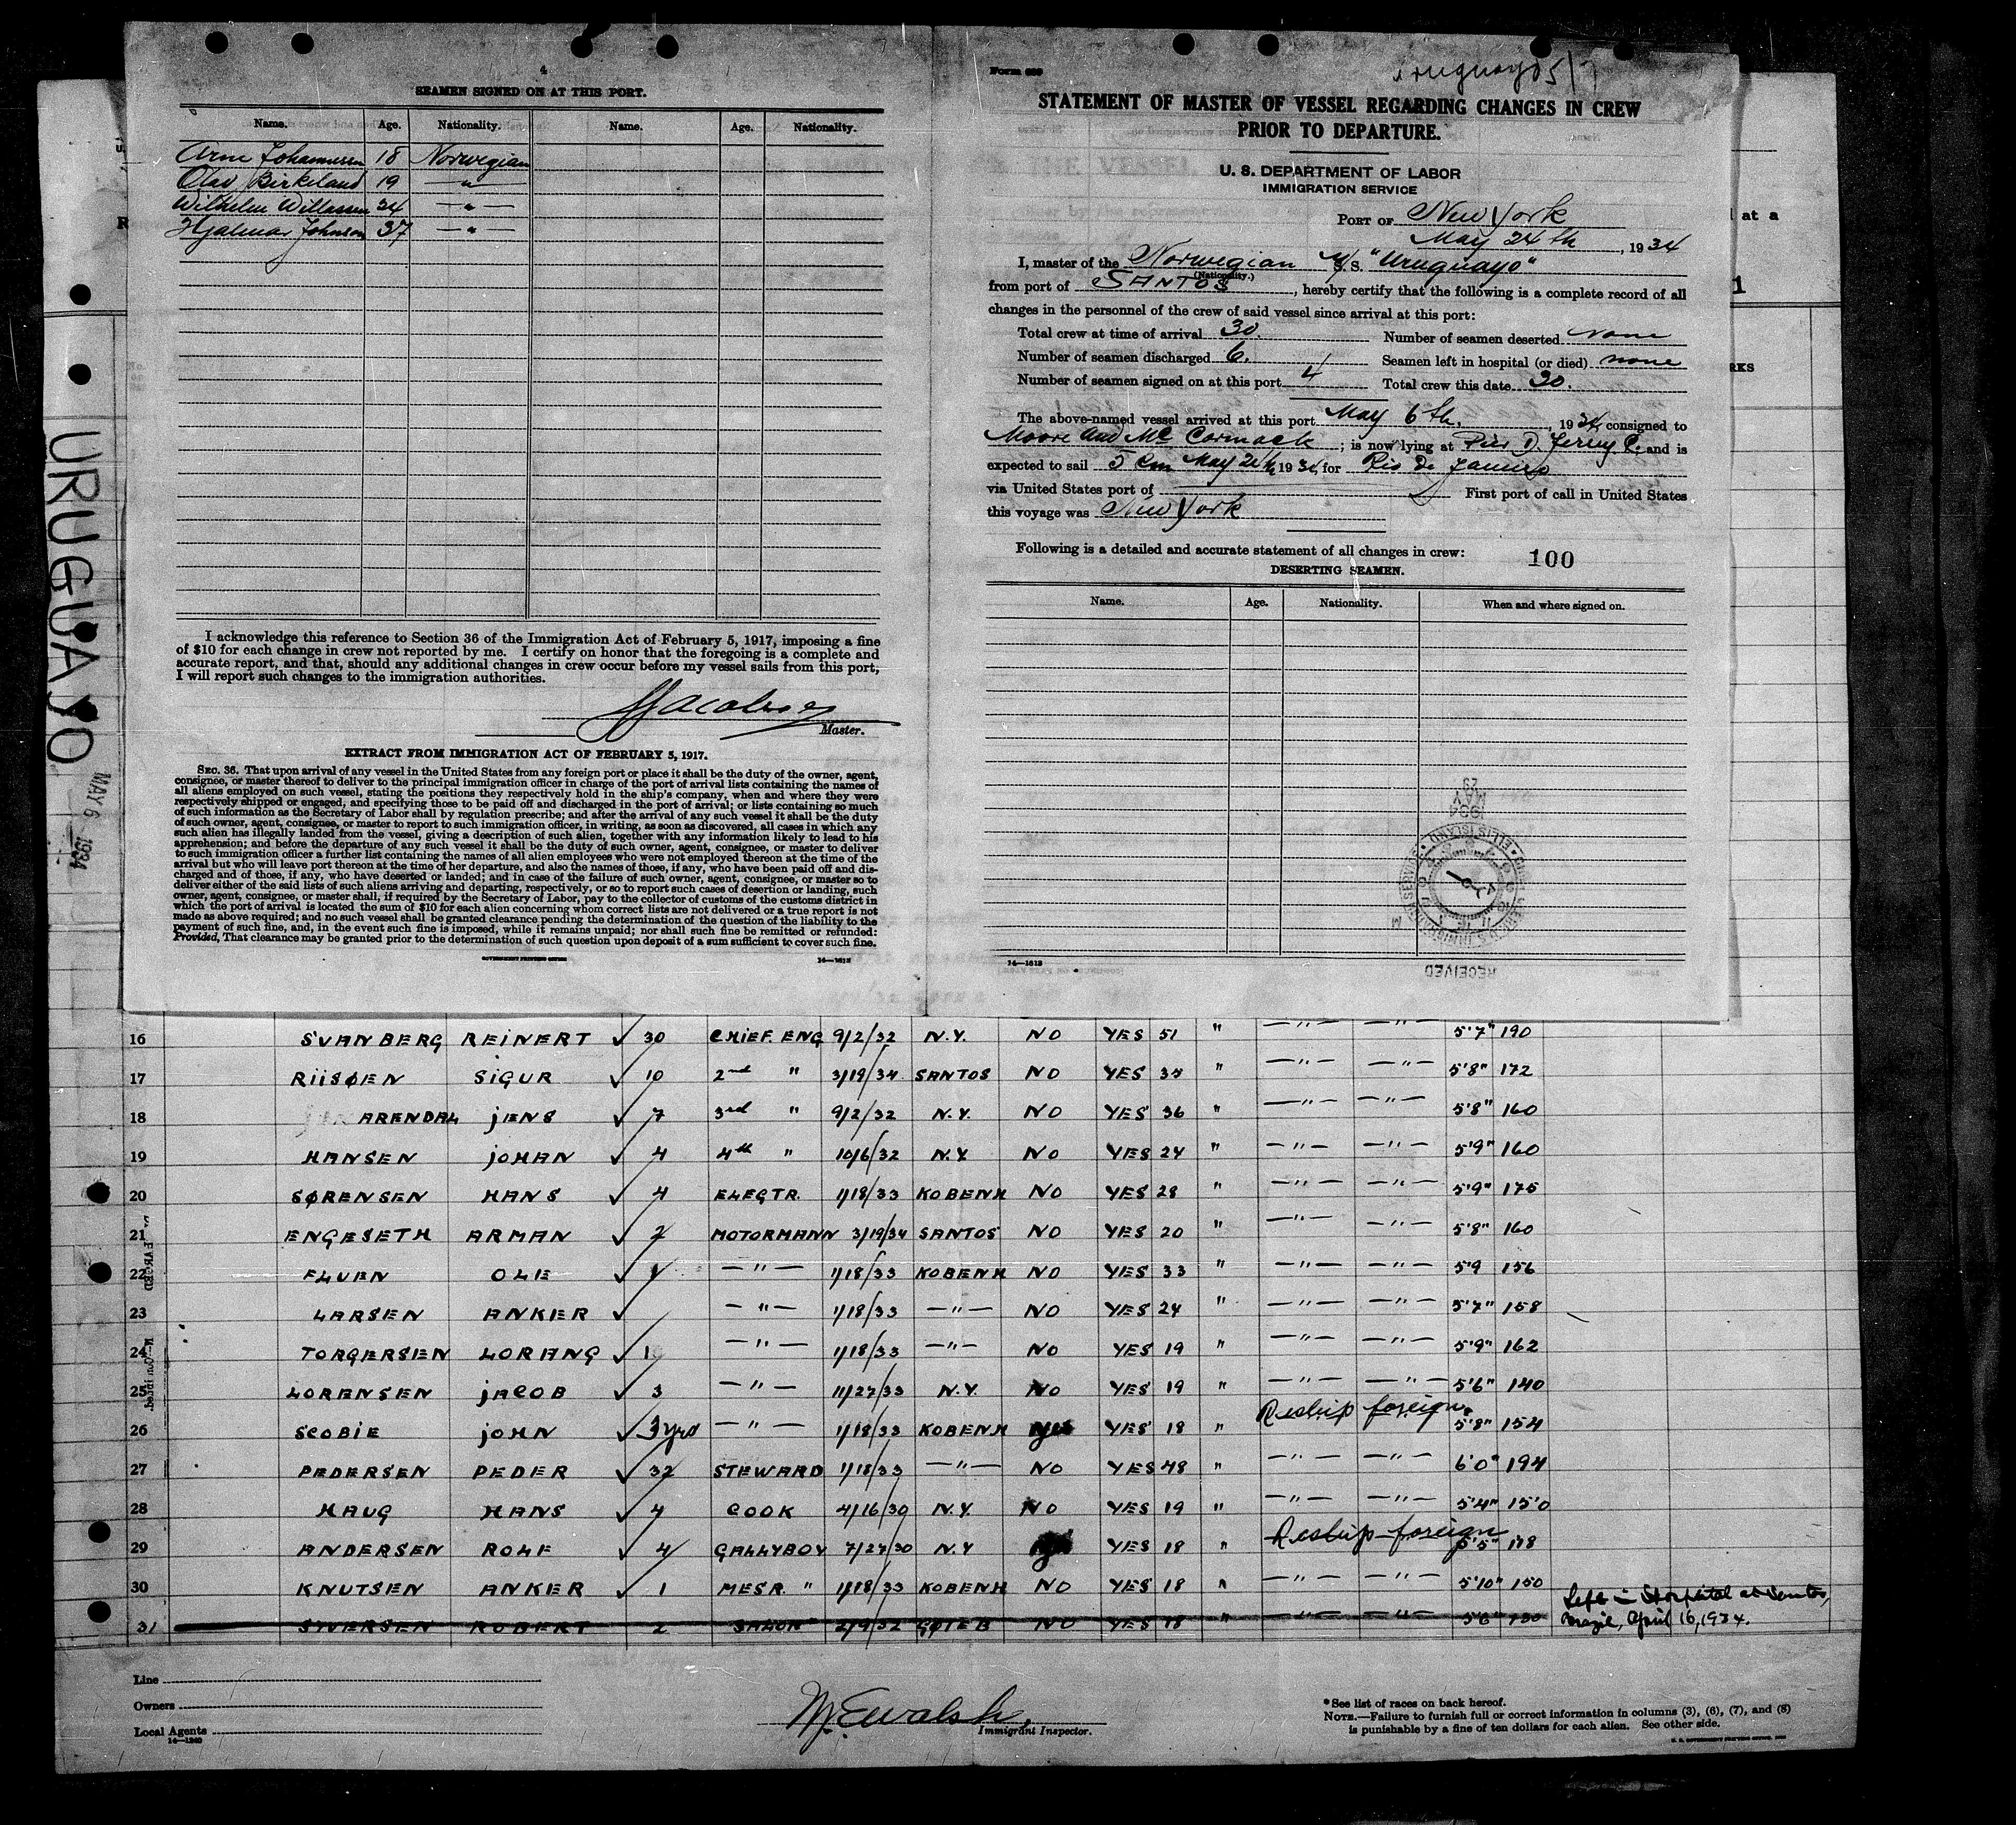 4
SEAMEN SIGNED ON AT THIS PORT.
Name. Age. Nationality. Name. Age. Nationality.
Arne Johannessen 18 Norwegian
Olav Birkeland 19 —"—
Wilhelm Willassen 34 —"—
Hjalmar Johnsen 37 —"—
I acknowledge this reference to Section 36 of the Immigration Act of February 5, 1917, imposing a fine
of $10 for each change in crew not reported by me. I certify on honor that the foregoing is a complete and
accurate report, and that, should any additional changes in crew occur before my vessel sails from this port,
I will report such changes to the immigration authorities.
Master.
EXTRACT FROM IMMIGRATION ACT OF FEBRUARY 5, 1917.
SEC. 36. That upon arrival of any vessel in the United States from any foreign port or place it shall be the duty of the owner, agent,
consignee, or master thereof to deliver to the principal immigration officer in charge of the port of arrival lists containing the names of
all aliens employed on such vessel, stating the positions they respectively hold in the ship's company, when and where they were
respectively shipped or engaged, and specifying those to be paid off and discharged in the port of arrival; or lists containing so much
of such information as the Secretary of Labor shall by regulation prescribe; and after the arrival of any such vessel it shall be the duty
of such owner, agent, consignee, or master to report to such immigration officer, in writing, as soon as discovered, all cases in which any
such alien has illegally landed from the vessel, giving a description of such alien, together with any information likely to lead to his
apprehension; and before the departure of any such vessel it shall be the duty of such owner, agent, consignee, or master to deliver
to such immigration officer a further list containing the names of all alien employees who were not employed thereon at the time of the
arrival but who will leave port thereon at the time of her departure, and also the names of those, if any, who have been paid off and dis-
charged and of those, if any, who have deserted or landed; and in case of the failure of such owner, agent, consignee, or master so to
deliver either of the said lists of such aliens arriving and departing, respectively, or so to report such cases of desertion or landing, such
owner, agent, consignee, or master shall, if required by the Secretary of Labor, pay to the collector of customs of the customs district in
which the port of arrival is located the sum of $10 for each alien concerning whom correct lists are not delivered or a true report is not
made as above required; and no such vessel shall be granted clearance pending the determination of the question of the liability to the
payment of such fine, and, in the event such fine is imposed, while it remains unpaid; nor shall such fine be remitted or refunded:
Provided, That clearance may be granted prior to the determination of such question upon deposit of a sum sufficient to cover such fine.
GOVERNMENT PRINTING OFFICE 14—1613
Form 689
Uruguayo 5/7
STATEMENT OF MASTER OF VESSEL REGARDING CHANGES IN CREW
PRIOR TO DEPARTURE.
U. S. DEPARTMENT OF LABOR
IMMIGRATION SERVICE
PORT OF New York
May 24th, 1934
I, master of the Norwegian M/S. S. "Uruguayo"
(Nationality.)
from port of SANTOS, hereby certify that the following is a complete record of all
changes in the personnel of the crew of said vessel since arrival at this port:
Total crew at time of arrival 30. Number of seamen deserted none
Number of seamen discharged 6. Seamen left in hospital (or died) none
Number of seamen signed on at this port 4 Total crew this date 30.
The above-named vessel arrived at this port May 6th, 1934, consigned to
Moore and Mc Cormack; is now lying at Pier D. Jersey C. and is
expected to sail 5 pm May 24th 1934, for Rio de Janeiro
via United States port of First port of call in United States
this voyage was New York
Following is a detailed and accurate statement of all changes in crew: 100
DESERTING SEAMEN.
Name. Age. Nationality. When and where signed on.
1934 MAY 29
ELLIS ISLAND
RECEIVED
14—1613
URUGUAYO
MAY 6 1934
at a
1
RKS
16 SVANBERG REINERT ✓ 30 CHIEF. ENG 9/2/32 N.Y. NO YES 51 " —"— —"— 5'7" 190
17 RIISØEN SIGUR ✓ 10 2nd " 3/19/34 SANTOS NO YES 34 " —"— —"— 5'8" 172
18 ARENDAL JENS ✓ 7 3rd " 9/2/32 N.Y. NO YES 36 " —"— —"— 5'8" 160
19 HANSEN JOHAN ✓ 4 4th " 10/6/32 N.Y. NO YES 24 " —"— —"— 5'9" 160
20 SØRENSEN HANS ✓ 4 ELEGTR. 1/18/33 KOBENH NO YES 28 " —"— —"— 5'9" 175
21 ENGESETH ARMAN ✓ 2 MOTORMANN 3/19/34 SANTOS NO YES 20 " —"— —"— 5'8" 160
22 FLUEN OLE ✓ 1 —"— 1/18/33 KOBENH NO YES 33 " —"— —"— 5'9 156
23 LARSEN ANKER ✓ —"— 1/18/33 —"— NO YES 24 " —"— —"— 5'7" 158
24 TORGERSEN LORANG ✓ 1 —"— 1/18/33 —"— NO YES 19 " —"— —"— 5'9" 162
25 LORENSEN JACOB ✓ 3 —"— 11/27/33 N.Y. NO YES 19 " —"— —"— 5'6" 140
26 SCOBIE JOHN ✓ 3 yrs —"— 1/18/33 KOBENH yes YES 18 " Reship foreign. 5'8" 154
27 PEDERSEN PEDER ✓ 32 STEWARD 1/18/33 —"— NO YES 48 " —"— —"— 6'0" 194
28 HAUG HANS ✓ 4 COOK 4/16/30 N.Y. NO YES 19 " —"— —"— 5'4" 150
29 ANDERSEN ROLF ✓ 4 GALLYBOY 7/27/30 N.Y yes YES 18 " Reship foreign 5'5" 178
30 KNUTSEN ANKER ✓ 1 MESR. " 1/18/33 KOBENH NO YES 18 " —"— —"— 5'10" 150
31 SIVERSEN ROBERT 2 SALON " 2/9/32 GØTEB NO YES 18 " —"— —"— 5'6" 130 Left in Hospital at Santos,
Brazil, April 16, 1934.
Line
Owners
Local Agents
14—1240
M. E. Walsh,
Immigrant Inspector.
*See list of races on back hereof.
NOTE.—Failure to furnish full or correct information in columns (3), (6), (7), and (8)
is punishable by a fine of ten dollars for each alien. See other side.